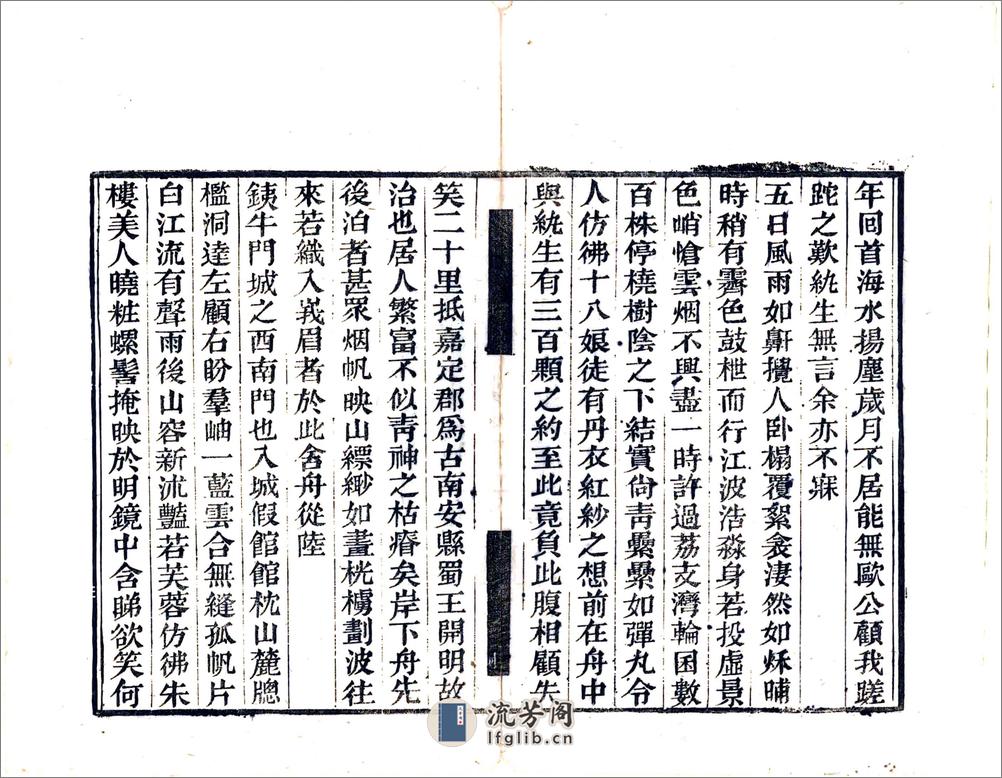 年回首海水揚塵歲月不居能無歐公顧我蹉
跎之歎紈生無言余亦不寐
五日風雨如鼾攪人卧榻覆絮衾淒然如秌晡
時稍有霽色鼓枻而行江波浩淼身若投虛景
色峭愴雲烟不興盡一時許過荔支灣輪囷數
百株停橈樹陰之下結實尙靑纍纍如彈丸令
人仿彿十八娘徒有丹衣紅紗之想前在舟中
與紈生有三百顆之約至此竟負此腹相顧失
笑二十里抵嘉定郡爲古南安縣蜀王開明故
治也居人繁富不似靑神之枯瘠矣岸下舟先
後泊者甚眾烟帆映山縹緲如畫桄樯劃波往
來若織入峩眉者於此舍舟從陸
銕牛門城之西南門也入城假館館枕山麓牕
檻洞達左顧右盼羣岫一藍雲合無縫孤帆片
白江流有聲雨後山容新沭豔若芙蓉仿彿朱
樓美人曉粧螺髻掩映於明鏡中含睇欲笑何
流芳阁
lfglib.cn